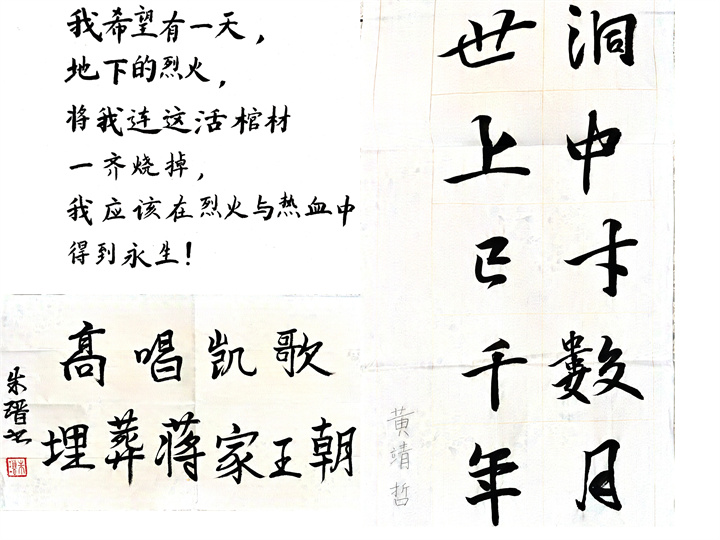 我希望有一天，
地下的烈火，
将我连这活棺材
一齐烧掉，
我应该在烈火与热血中
得到永生！
高唱凯歌
埋葬蒋家王朝
朱瑨书
洞中才數月
世上已千年
黃靖哲